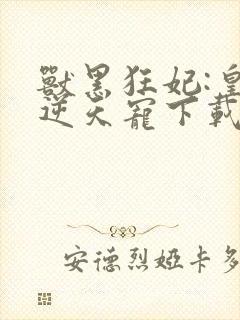 獸黑狂妃:皇
逆天寵下載
安德烈婭卡多